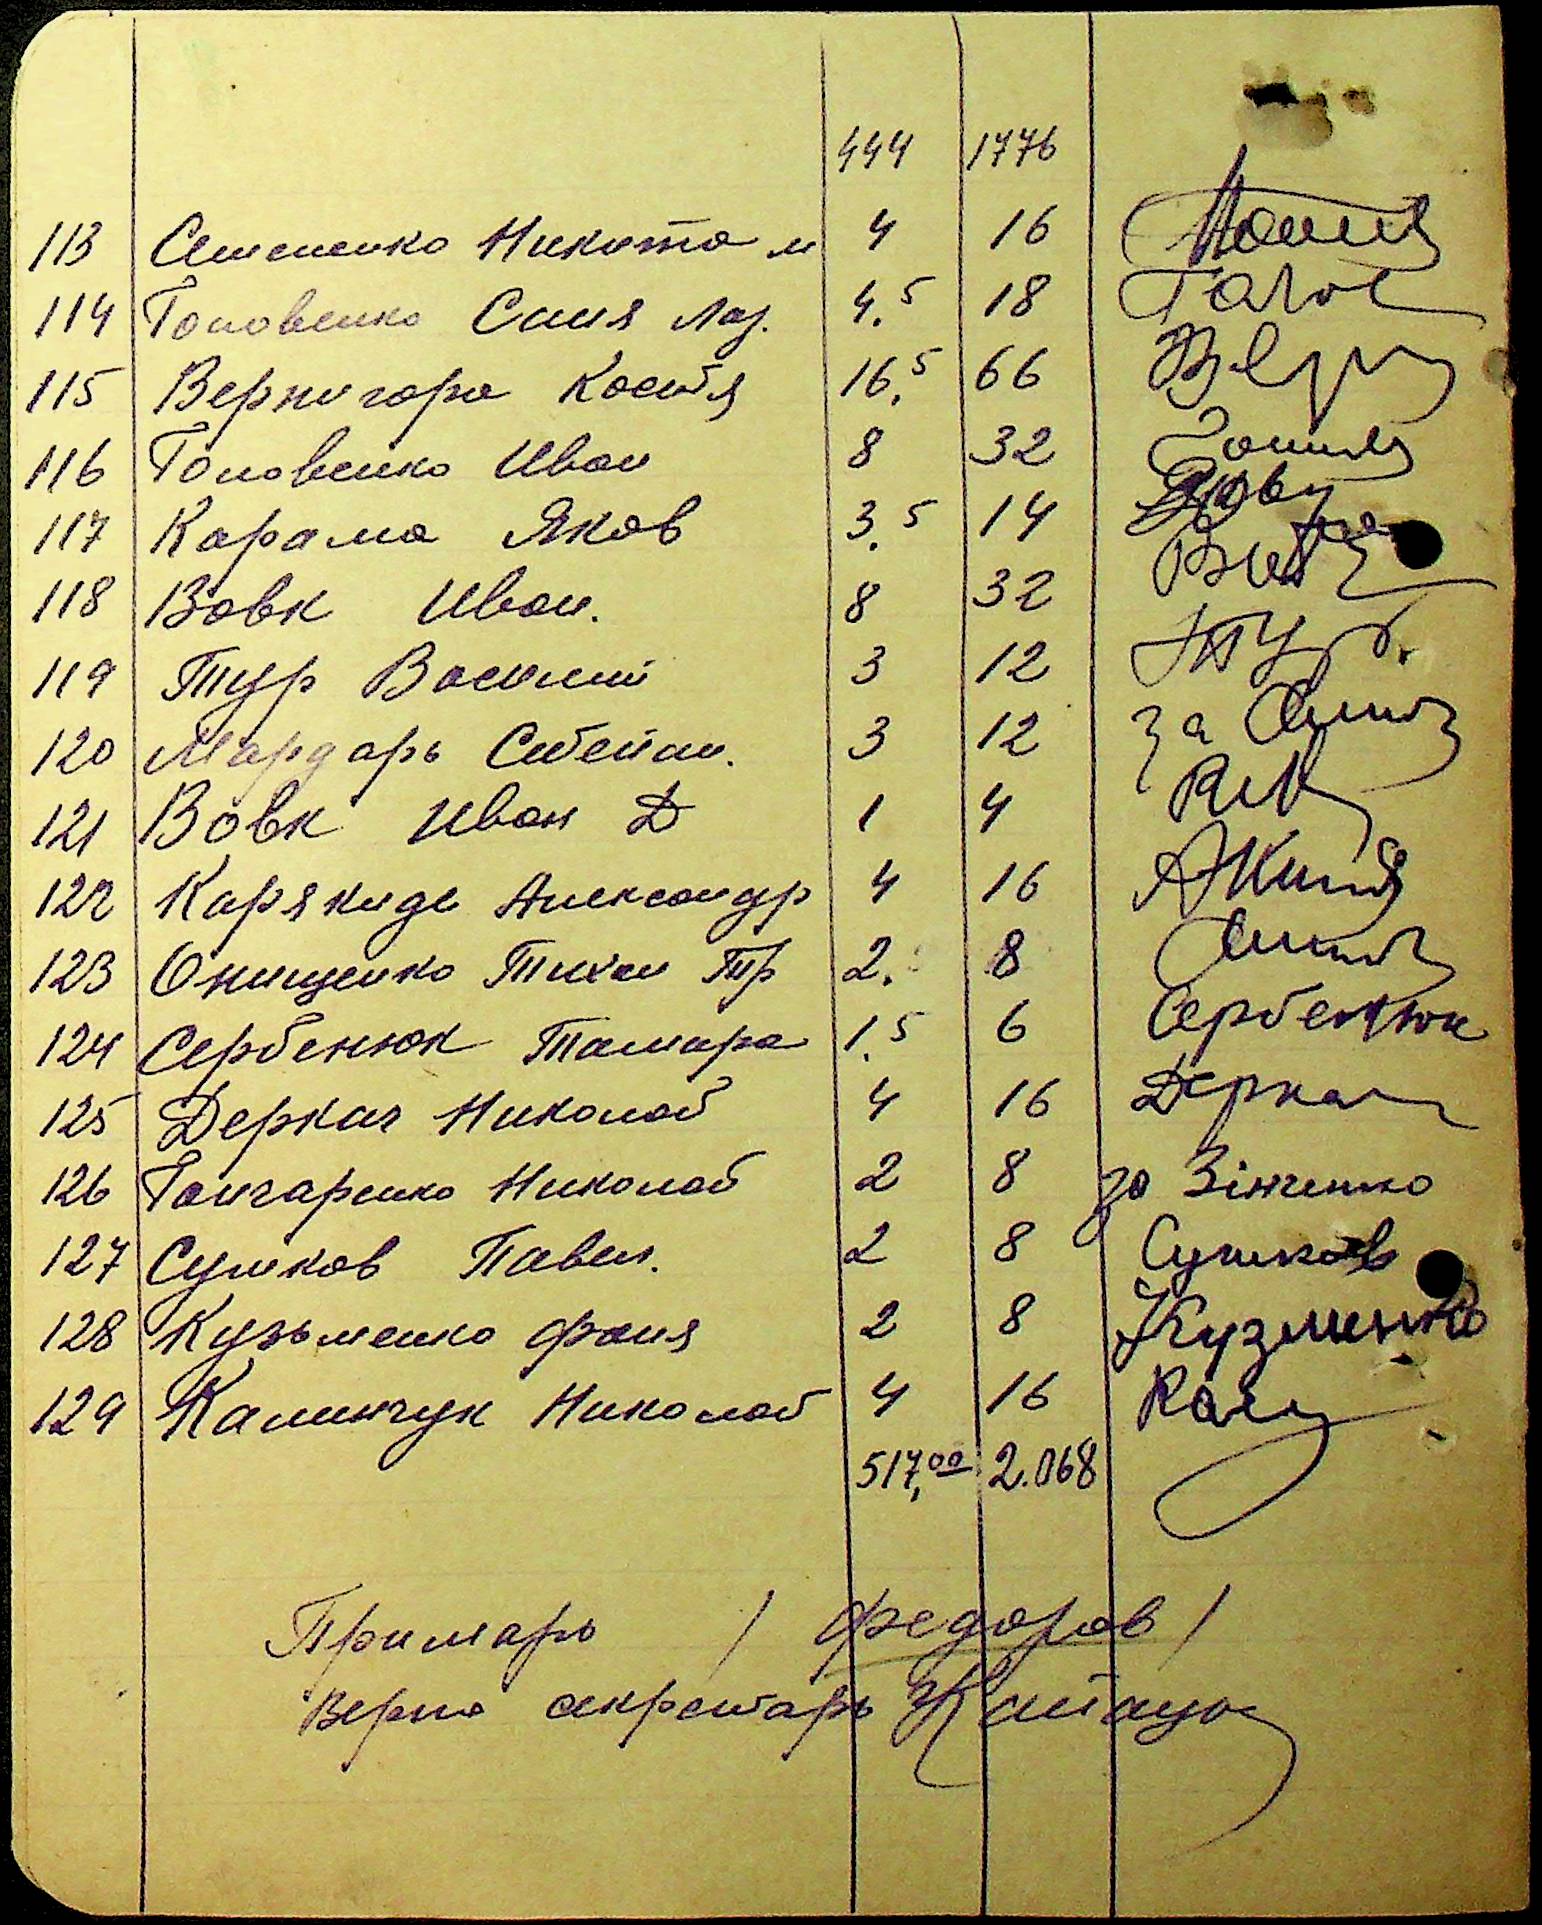 444 1776
113 Семененко Никита м 4 16
114 Головенко Соня Лаз. 4.5 18 Голов
115 Вернигора Костя 16.5 66 Верн
116 Головенко Иван 8 32
117 Карама Яков 3.5 14
118 Вовк Иван. 8 32
119 Тур Василий 3 12 Тур.
120 Мардарь Степан. 3 12 за
121 Вовк Иван Д 1 4
122 Карякиде Александр 4 16
123 Онищенко Тихон Тр 2. 8
124 Сербенюк Тамара 1.5 6 Сербенюк
125 Деркач Николай 4 16 Деркач
126 Гончаренко Николай 2 8 за Зінченко
127 Сушков Павел. 2 8 Сушков
128 Кузьменко Фаня 2 8 Кузменко
129 Калинчук Николай 4 16 Кали
517,00 2.068
Примарь / Федоров /
Верно секретарь